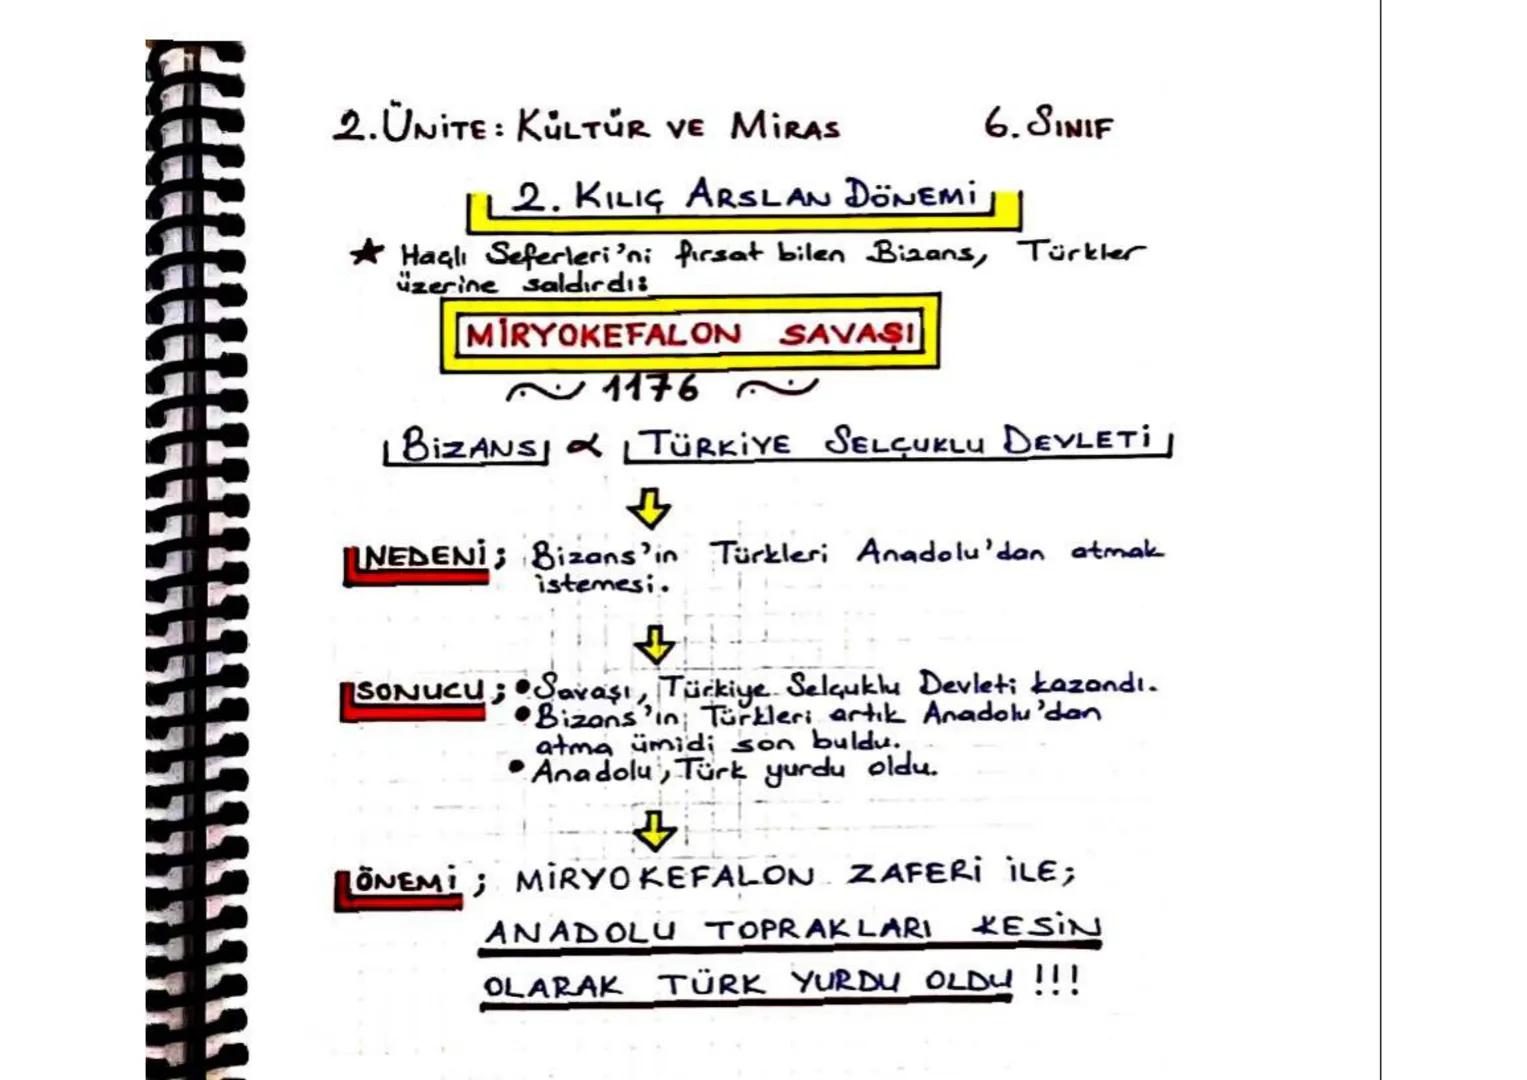 2.ÜNİTE: KÜLTÜR VE MİRAS 6. SINIF
2. KILIÇ ARSLAN DÖNEMİ
★ Haçlı Seferleri'ni fırsat bilen Bizans, Türkler
üzerine saldırdı:
MİRYOKEFALON SAVAŞI
~ 1176 ~
BİZANS α TÜRKİYE SELÇUKLU DEVLETİ
NEDENİ; Bizans'ın Türkleri Anadolu'dan atmak
istemesi.
SONUCU; • Savaşı, Türkiye Selçuklu Devleti kazandı.
• Bizans'ın, Türkleri artık Anadolu'dan
atma ümidi son buldu.
• Anadolu, Türk yurdu oldu.
ÖNEMİ; MİRYOKEFALON ZAFERİ İLE;
ANADOLU TOPRAKLARI KESİN
OLARAK TÜRK YURDU OLDU !!!